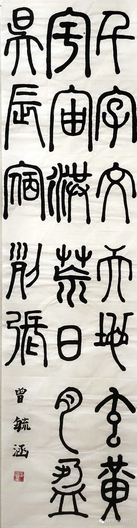 千字文天地玄黃
宇宙洪荒日月盈
昃辰宿列張 曾毓涵